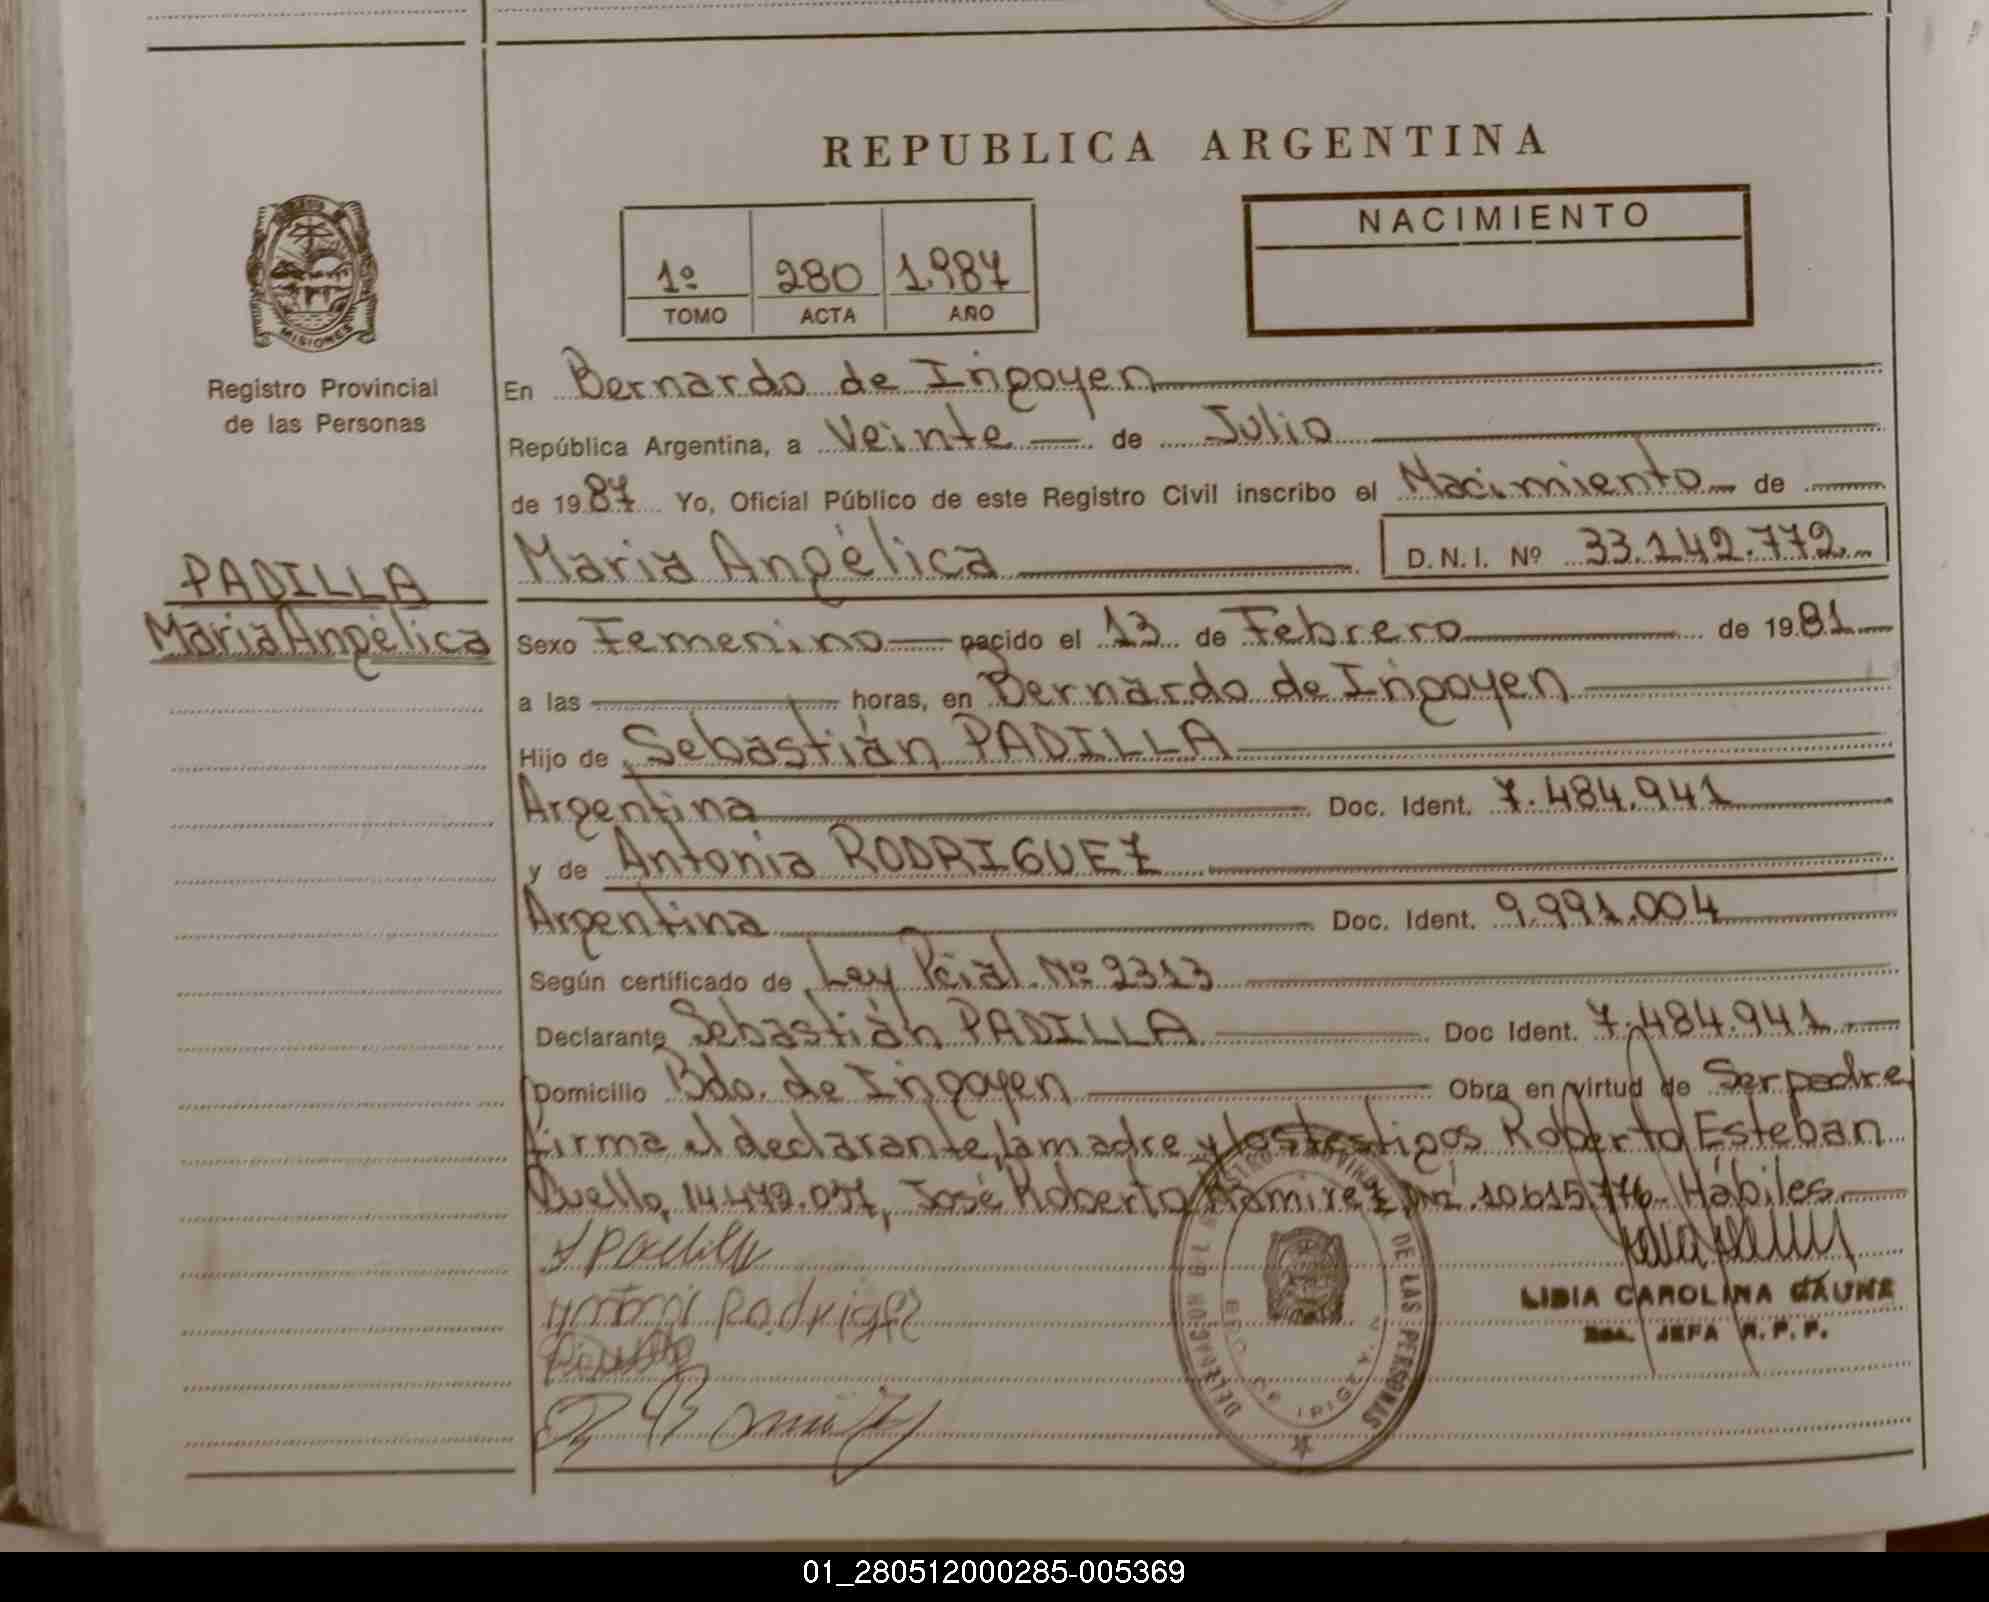 REPUBLICA ARGENTINA
NACIMIENTO
1º 280 1.987
TOMO ACTA AÑO
MISIONES
Registro Provincial
de las Personas
En Bernardo de Irigoyen
República Argentina, a Veinte de Julio
de 1987 Yo, Oficial Público de este Registro Civil inscribo el Nacimiento de
PADILLA
María Angélica
María Angélica D.N.I. Nº 33.142.772
Sexo Femenino nacido el 13 de Febrero de 1981
a las horas, en Bernardo de Irigoyen
Hijo de Sebastián PADILLA
Argentina Doc. Ident. 7.484.941
y de Antonia RODRIGUEZ
Argentina Doc. Ident. 9.991.004
Según certificado de Ley Pcial. Nº 2313
Declarante Sebastián PADILLA Doc Ident. 7.484.941
Domicilio Bdo. de Irigoyen Obra en virtud de Ser padre
firma el declarante, la madre y los testigos Roberto Esteban
Cuello, 14.479.057, José Roberto Ramirez, DNI. 10615.776 Hábiles
S Padilla
Rodriguez
DELEGACION DE LAS PERSONAS
BDO. DE IRIGOYEN
LIDIA CAROLINA GAUNA
JEFA R. P. P.
01_280512000285-005369